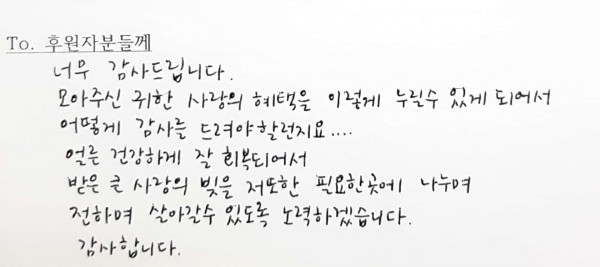 To. 후원자분들께
너무 감사드립니다.
모아주신 귀한 사랑의 혜택을 이렇게 누릴수 있게 되어서
어떻게 감사를 드려야할런지요....
얼른 건강하게 잘 회복되어서
받은 큰 사랑의 빚을 저또한 필요한곳에 나누며
전하며 살아갈수 있도록 노력하겠습니다.
감사합니다.